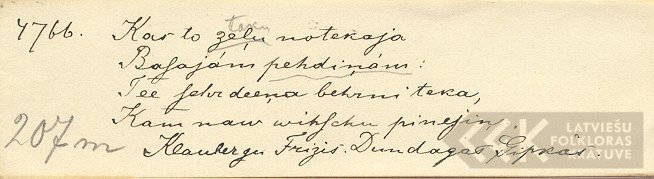 teku
4766. Kas to zeļu notekaja
Baſajám pehdiņám:
Tee ſehrdeeņa behrni teka,
Kam naw wihſchu pinejin.
207 m
Klaubergu Frizis. Dundagas Gipkās.
LATVIEŠU
FOLKLORAS
KRĀTUVE